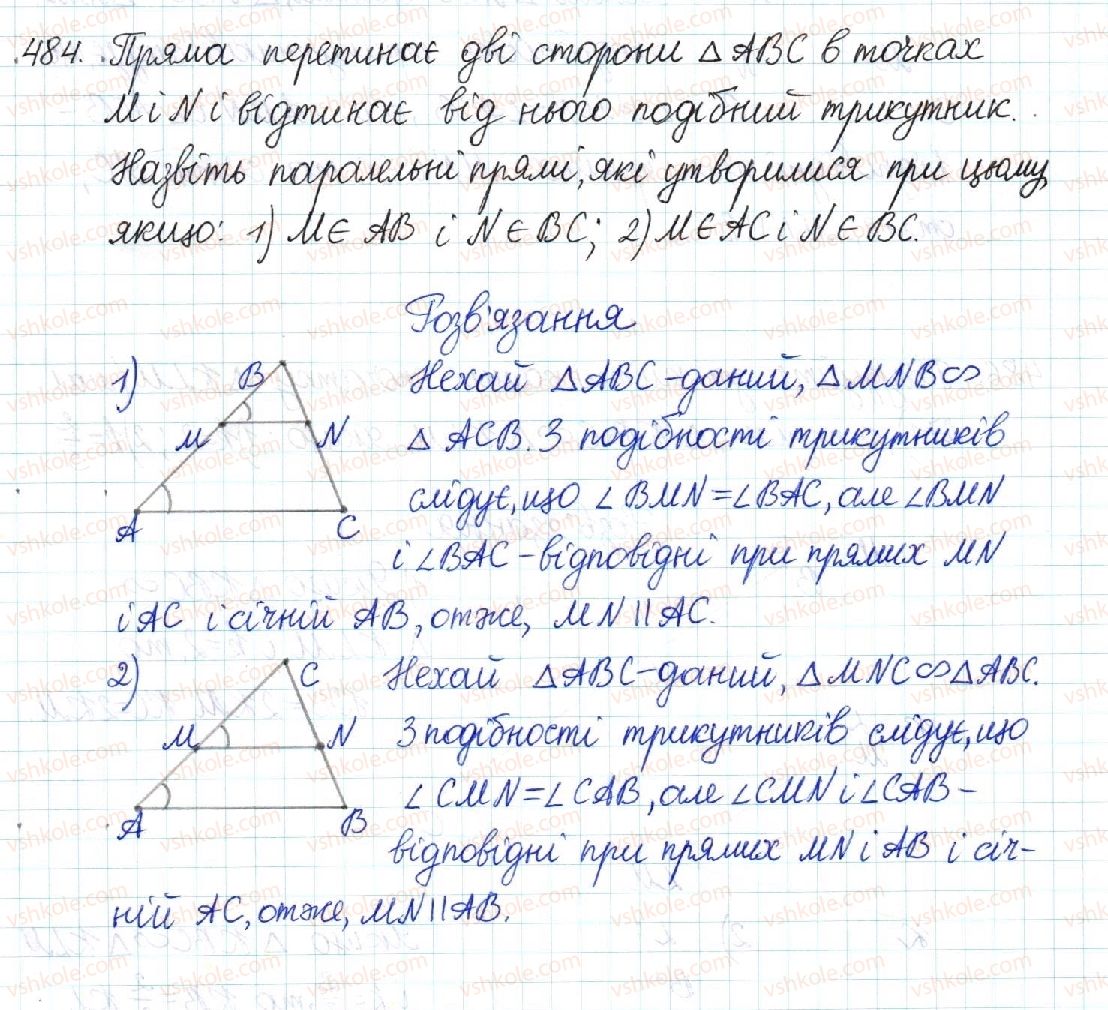 484. Пряма перетинає дві сторони △ABC в точках
M і N і відтинає від нього подібний трикутник.
Назвіть паралельні прямі, які утворилися при цьому,
якщо: 1) M∈AB і N∈BC; 2) M∈AC і N∈BC.
Розв'язання
1)
B
M
N
A
C
Нехай △ABC - даний, △MNB∽
△ACB. З подібності трикутників
слідує, що ∠BMN=∠BAC, але ∠BMN
і ∠BAC - відповідні при прямих MN
і AC і січній AB, отже, MN||AC.
2)
C
M
N
A
B
Нехай △ABC - даний, △MNC∽△ABC.
З подібності трикутників слідує, що
∠CMN=∠CAB, але ∠CMN і ∠CAB -
відповідні при прямих MN і AB і січ-
ній AC, отже, MN||AB.
vshkole.com